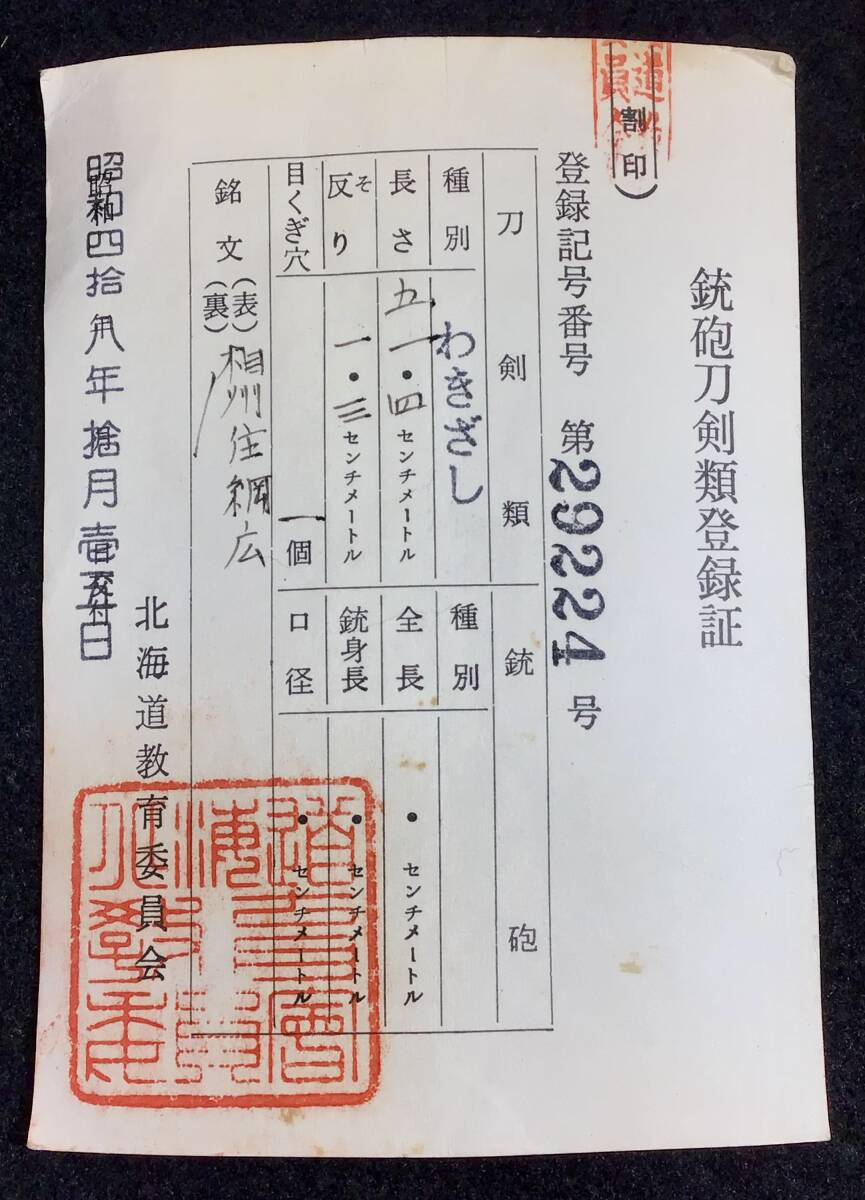 銃砲刀剣類登録証
(割印)
登録記号番号 第29224号
刀剣類
銃砲
種別 わきざし
種別
長さ 五一・四センチメートル
全長 ・ センチメートル
反り そ 一・三センチメートル
銃身長 ・ センチメートル
目くぎ穴 一個
口径 ・ センチメートル
銘文 (表)(裏) 相州住綱広
北海道教育委員会
昭和四拾八年拾月壱五日交付